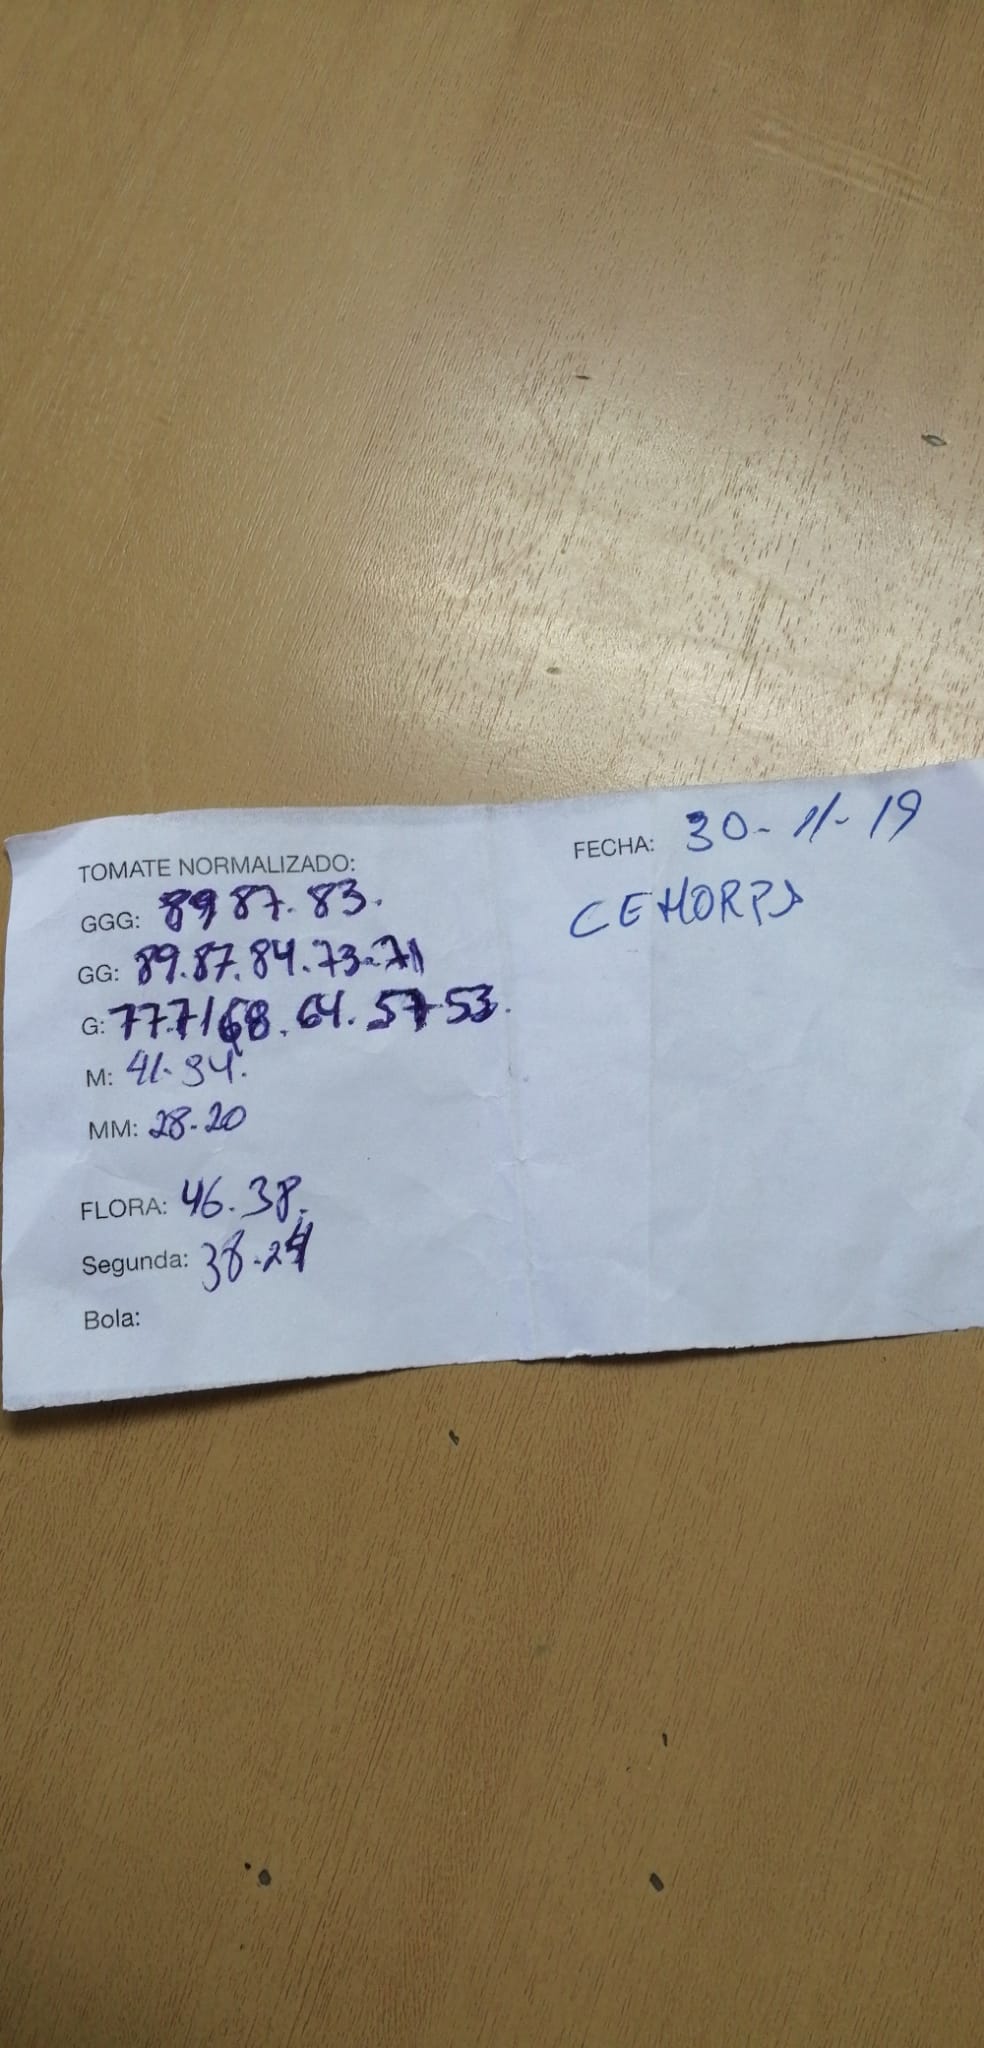 TOMATE NORMALIZADO:
GGG: 89 87. 83.
GG: 89.87.84.73-71
G: 77.71 68. 64. 57 53.
M: 41-34.
MM: 28-20
FLORA: 46.38.
Segunda: 38-24
Bola:
FECHA: 30-11-19